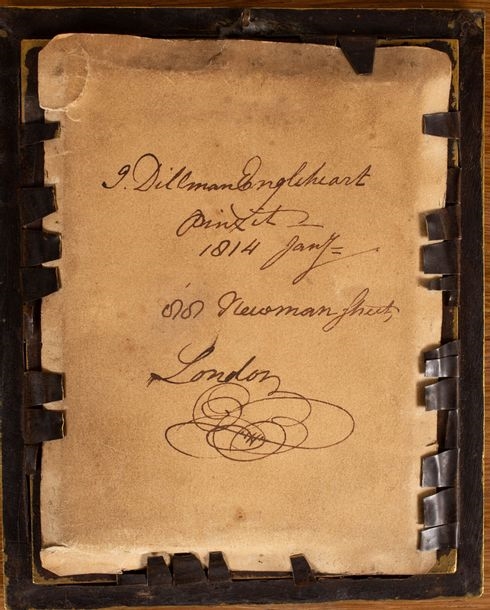 J. Dillman Engleheart
Pinxit
1814 Jany=
88 Newman Street,
London